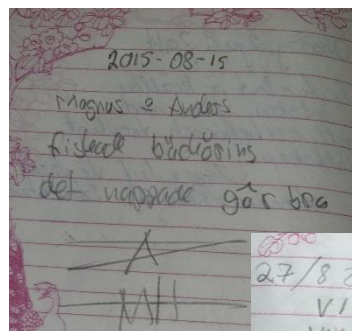 2015-08-15
Magnus & Anders
fiskade
det nappade går bra
A
MH
27/8
VI